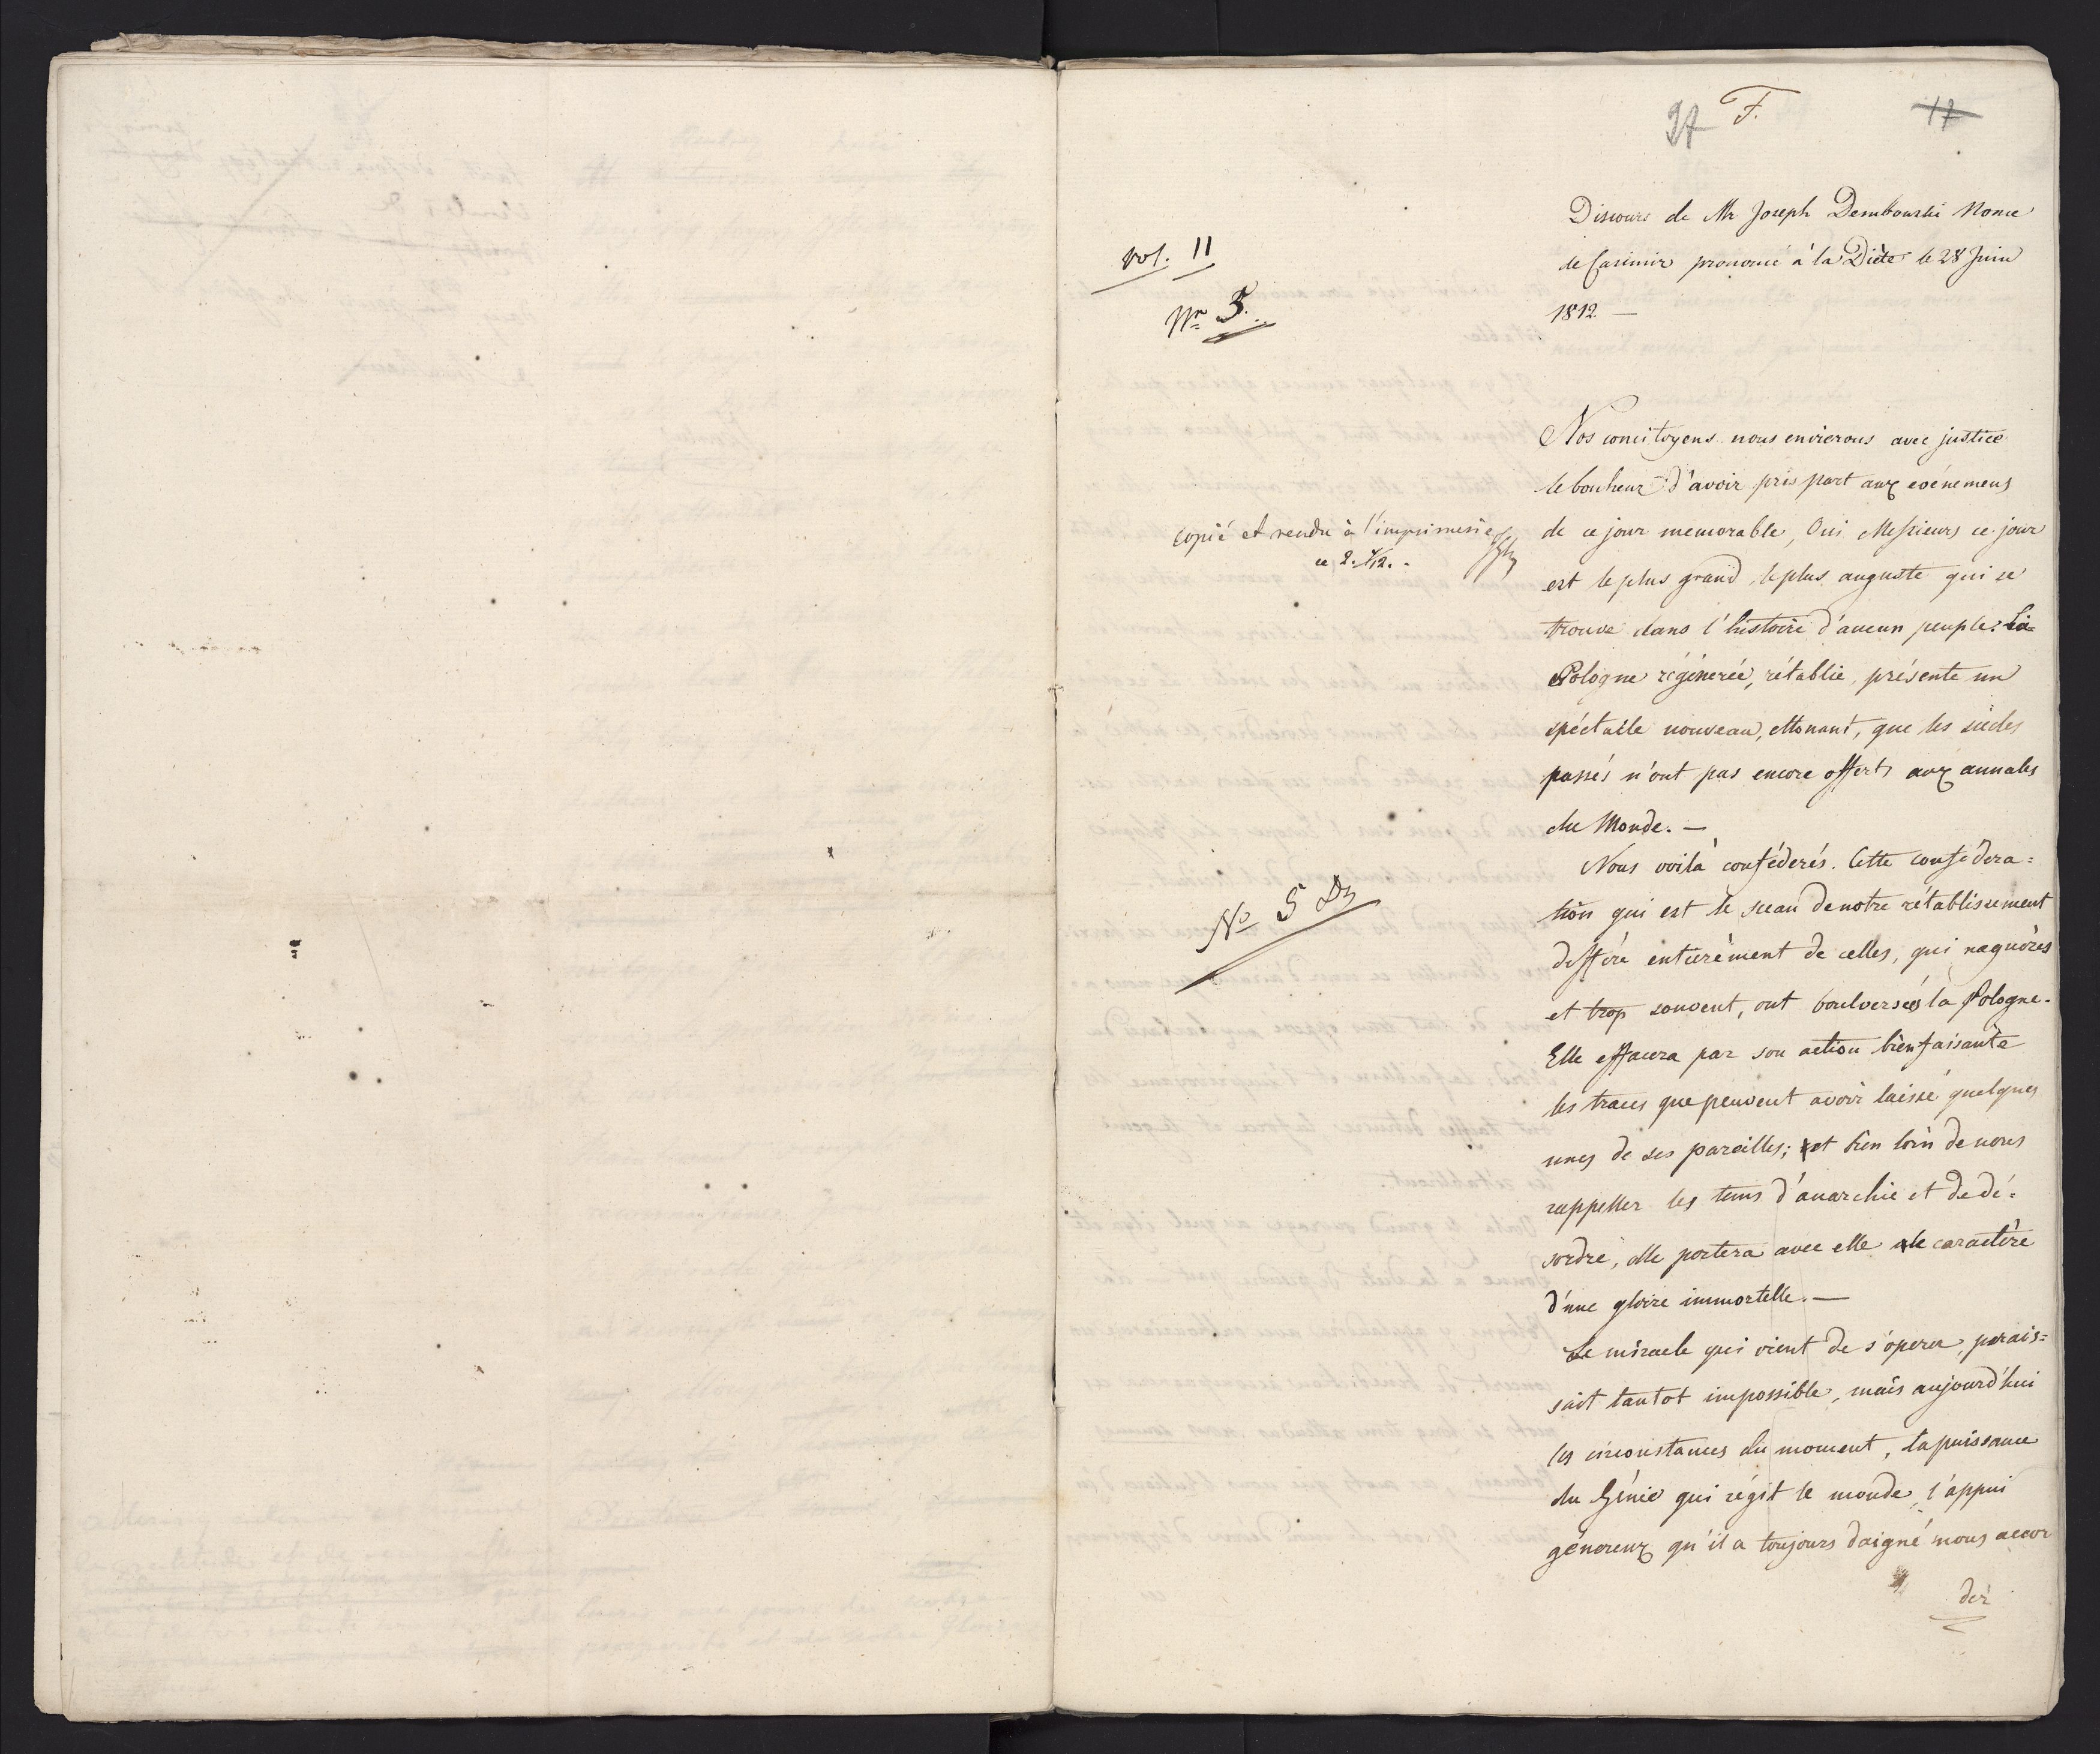 27 F. 17
vol. 11
Nr 3.
Discours de Mr Joseph Dembowski Nonce
de Casimir prononcé à la Diète le 28 Juin
1812. —
Nos concitoyens nous envierons avec justice
le bonheur d'avoir pris part aux evénemens
copié et rendu à l'imprimerie
ce 2. /12.
de ce jour memorable, Oui Messieurs ce jour
est le plus grand, le plus auguste qui se
trouve dans l'histoire d'aucun peuple. La
Pologne régénerée, rétablie, présente un
spéctacle nouveau, ettonant, que les siècles
passés n'ont pas encore offerts aux annales
du Monde. —
Nous voilà conféderés. Cette confédera=
tion qui est le sceau de notre rétablissement
No 5
differe entierèment de celles, qui naguères
et trop souvent, ont boulversées la Pologne.
Elle effacera par son action bienfaisante
les traces que peuvent avoir laissé quelques
unes de ses pareilles; et bien loin de nous
rappeller les tems d'anarchie et de dé=
sordre, elle portera avec elle le caractère
d'une gloire immortelle. —
Le miracle qui vient de s'operer, parais=
sait tantot impossible, mais aujourd'hui
les circonstances du moment, la puissance
du Génie qui régit le monde, l'appui
génereux qu'il a toujours daigné nous accor
der